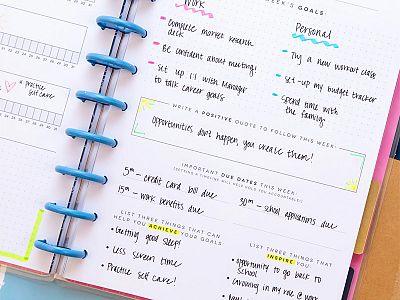 WEEK'S GOALS:
Work
Personal
Complete market research
deck
Be confident about meeting!
Set up 1:1 with Manager
to talk career goals
Try a new workout class
Set-up my budget tracker
Spend time with
the family
WRITE A POSITIVE QUOTE TO FOLLOW THIS WEEK:
Opportunities don't happen, you create them!
IMPORTANT DUE DATES THIS WEEK:
5th - credit card bill due
15th - work benefits due
30th - school applications due
LIST THREE THINGS THAT CAN
HELP YOU ACHIEVE YOUR GOALS
Getting good sleep!
Less screen time
Practice self care!
LIST THREE THINGS THAT
INSPIRE YOU:
opportunity to go back to
school
Growing in my role @ work
a practice
self care